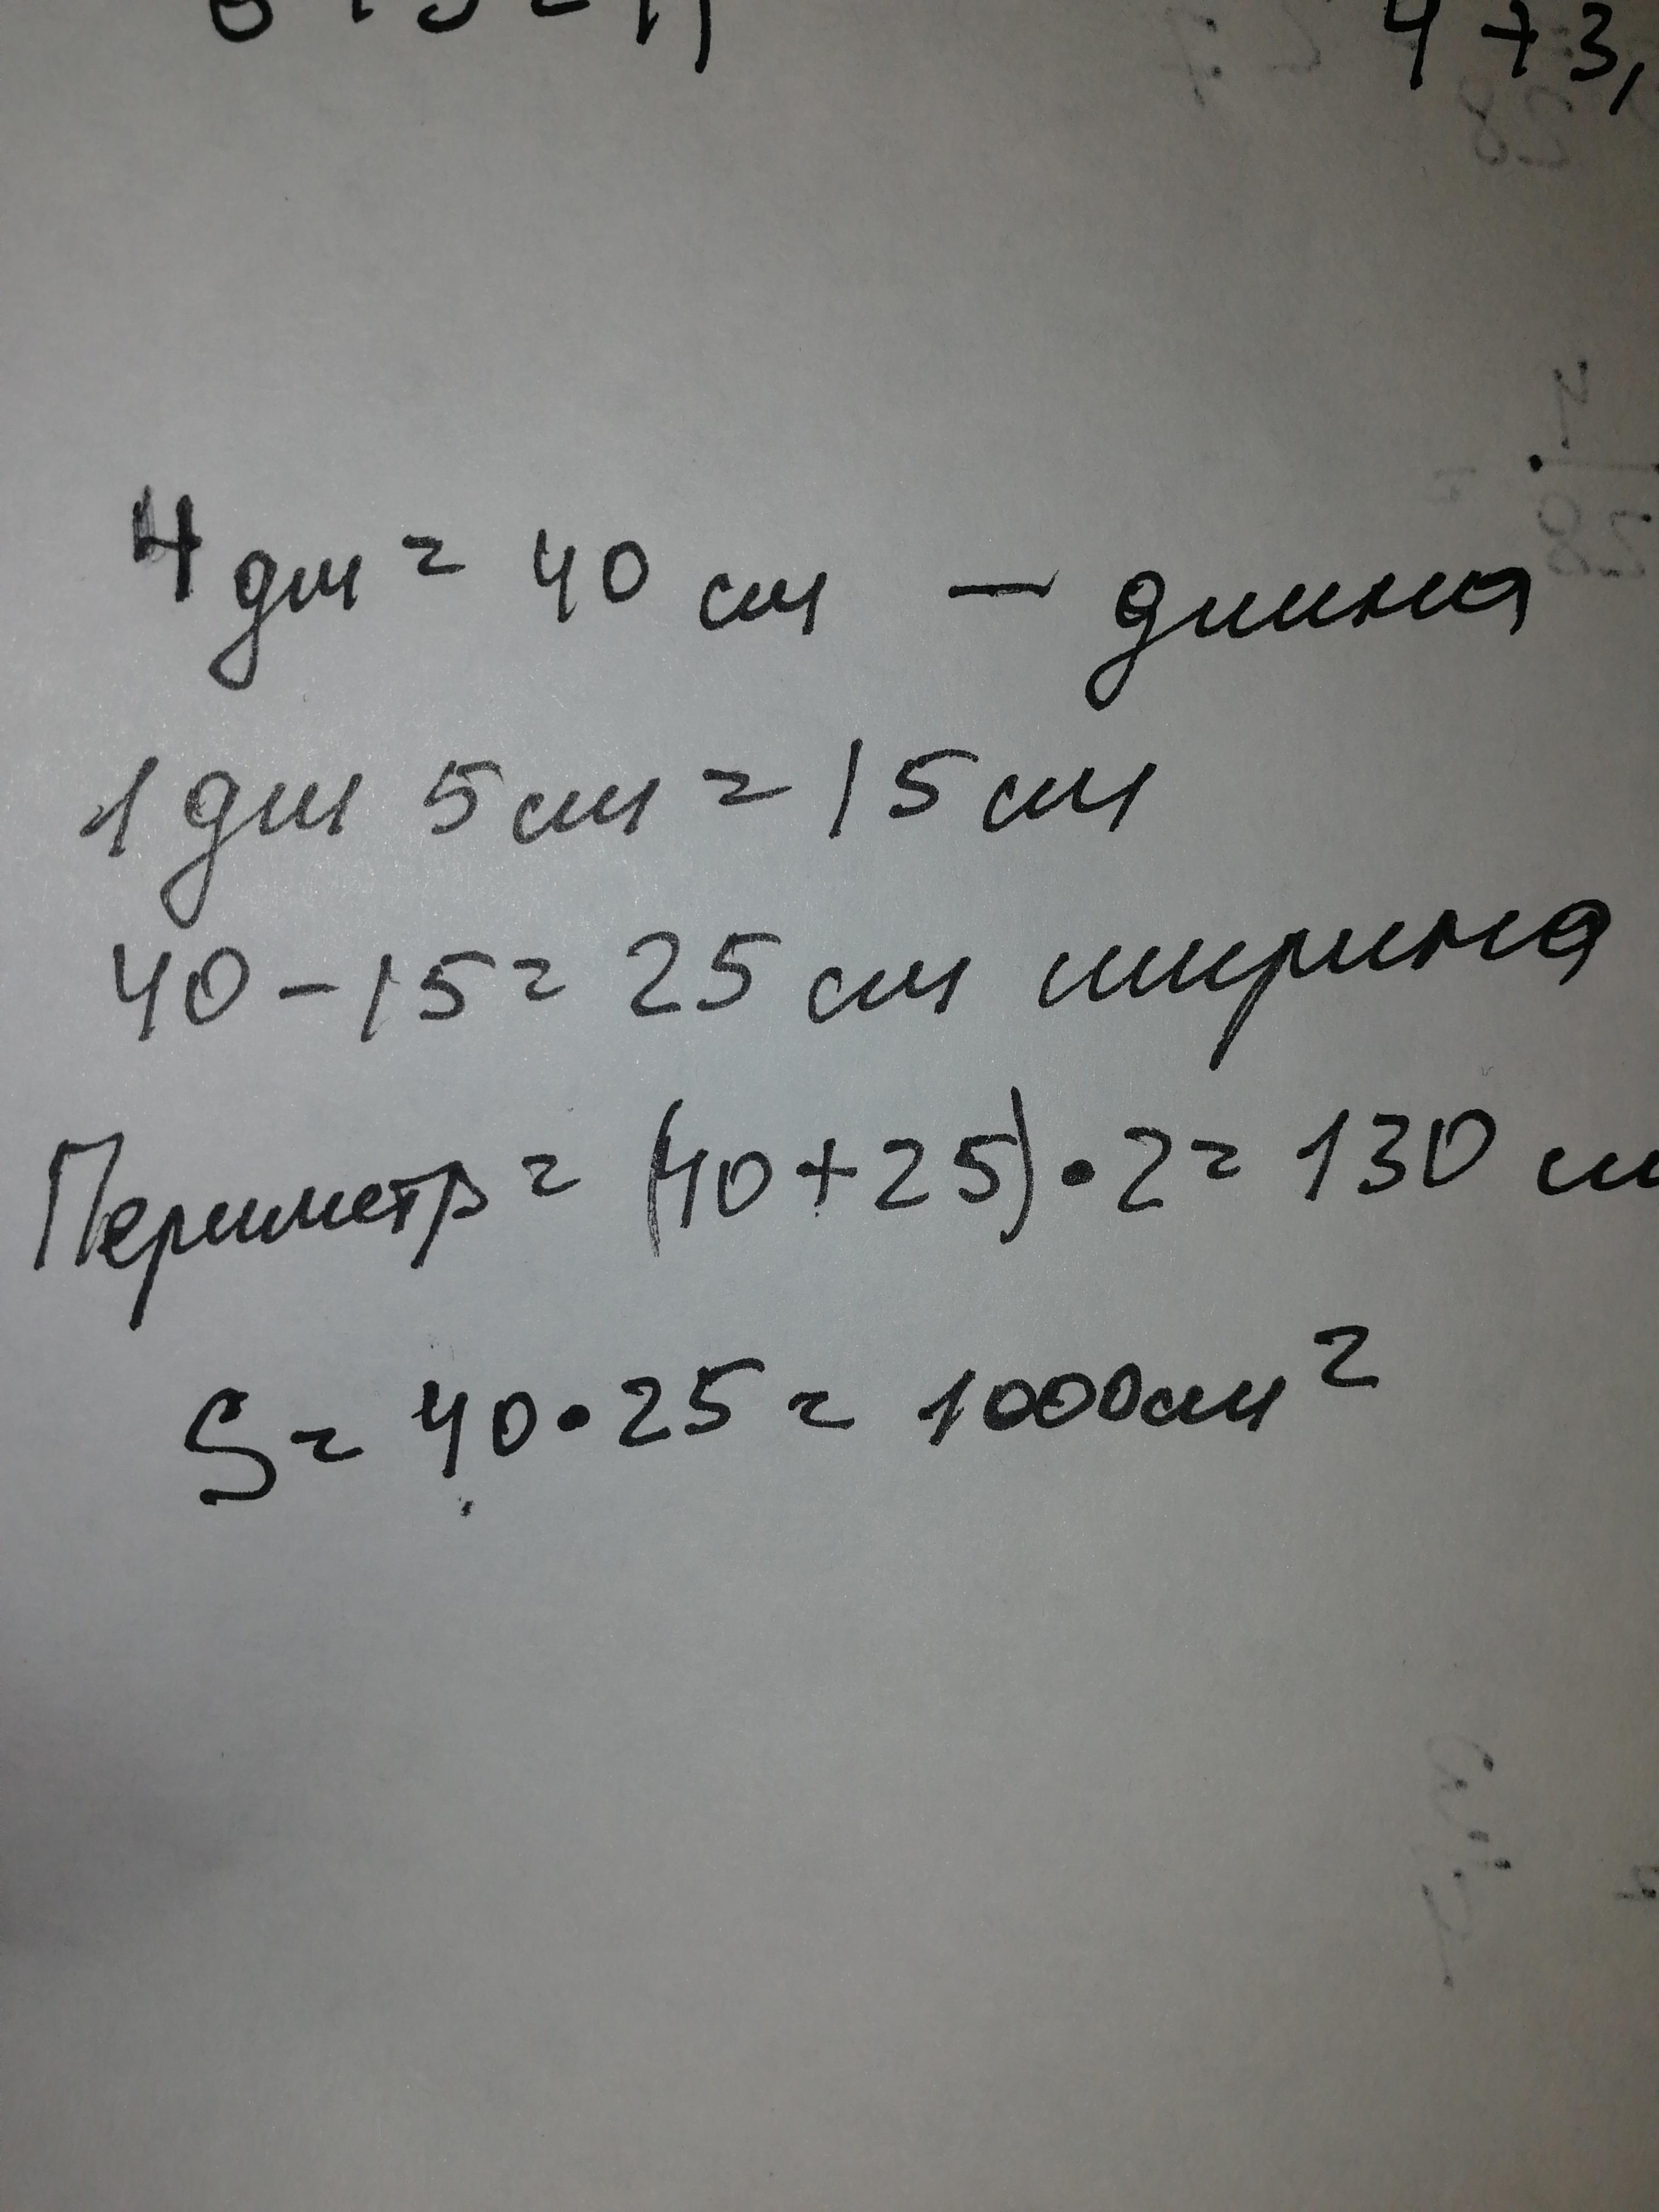 4 + 3,
4 дм = 40 см – длина
1 дм 5 см = 15 см
40 – 15 = 25 см ширина
Периметр = (40 + 25) • 2 = 130 см
S = 40 • 25 = 1000 см²